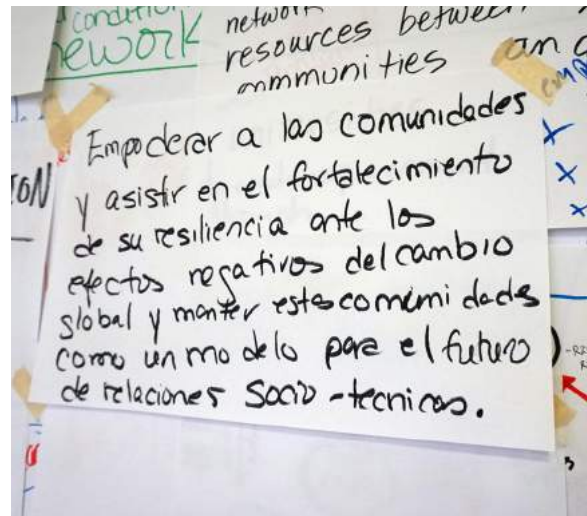 condition
ework
network
resources between
communities
an
Empoderar a las comunidades
y asistir en el fortalecimiento
de su resiliencia ante los
efectos negativos del cambio
global y manter estas comimidades
como un modelo para el futuro
de relaciones Socio-tecnicas.
ION